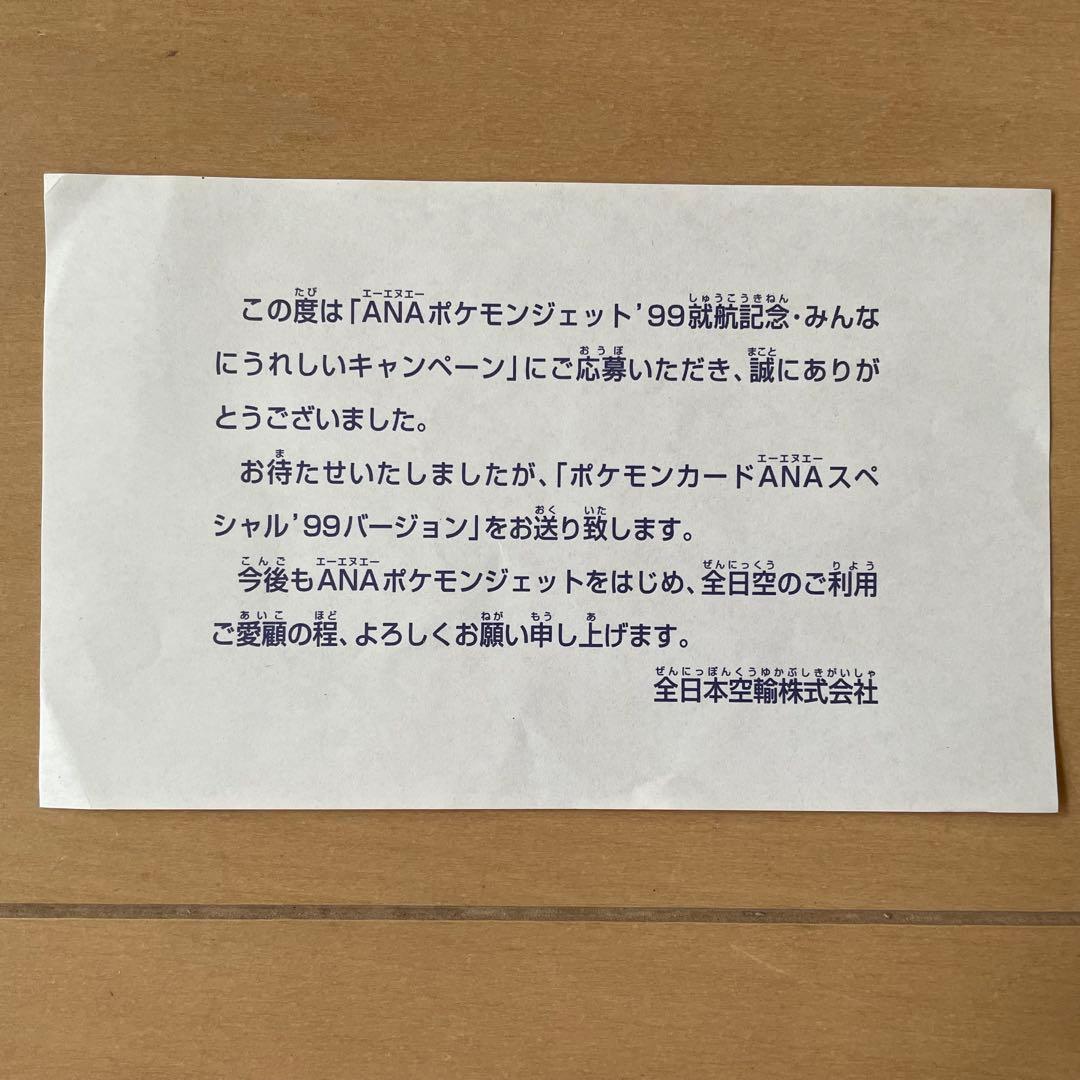 この度は「ANAポケモンジェット'99就航記念・みんな
にうれしいキャンペーン」にご応募いただき、誠にありが
とうございました。
お待たせいたしましたが、「ポケモンカードANAスペ
シャル'99バージョン」をお送り致します。
今後もANAポケモンジェットをはじめ、全日空のご利用
ご愛顧の程、よろしくお願い申し上げます。
全日本空輸株式会社